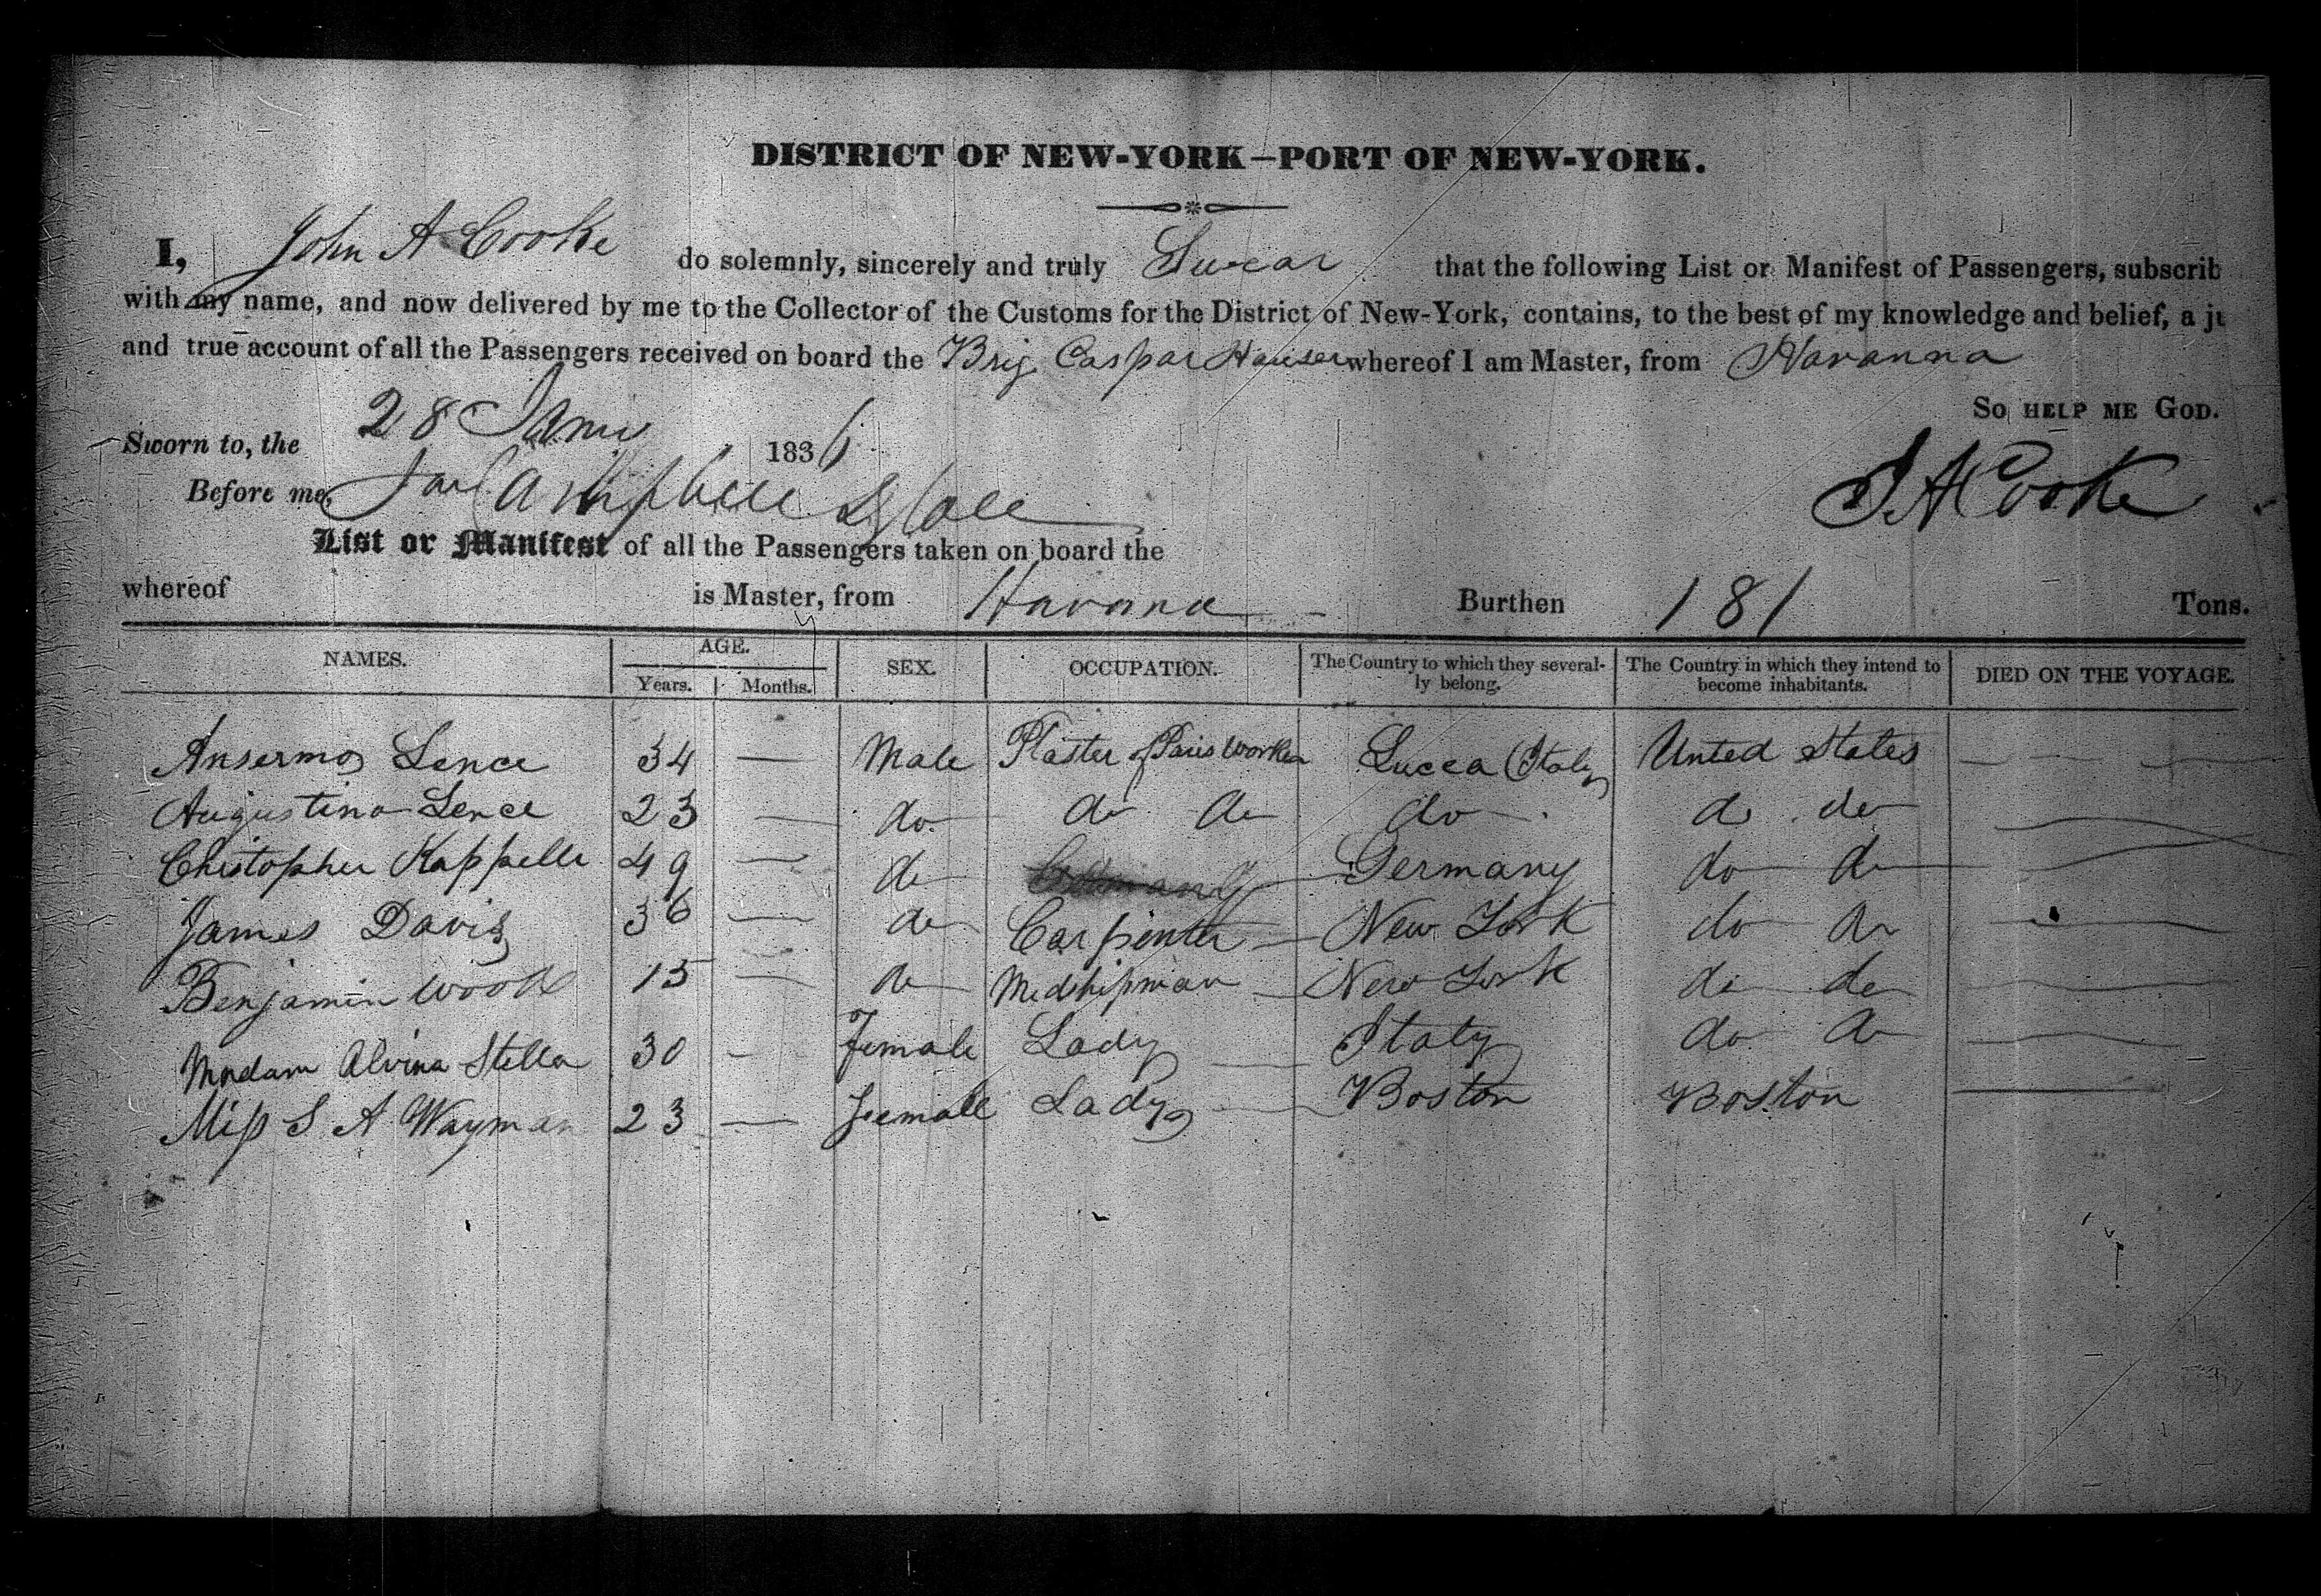 DISTRICT OF NEW-YORK—PORT OF NEW-YORK.
I, John A Cooke do solemnly, sincerely and truly Swear that the following List or Manifest of Passengers, subscrib
with my name, and now delivered by me to the Collector of the Customs for the District of New-York, contains, to the best of my knowledge and belief, a ju
and true account of all the Passengers received on board the Brig Caspar Hauser whereof I am Master, from Havanna
So HELP ME GOD.
Sworn to, the 28 1836
Before me, Campbell
J A Cooke
List or Manifest of all the Passengers taken on board the
whereof is Master, from Havana Burthen 181 Tons.
NAMES. AGE. SEX. OCCUPATION. The Country to which they several- The Country in which they intend to DIED ON THE VOYAGE.
Years. Months. ly belong. become inhabitants.
Ansermo Lence 34 — Male Plaster of Paris Worker Lucca (Italy United States
Augustino Lence 23 — do do do do do do
Christopher Kappelle 49 — do Germany do do
James Davis 36 — do Carpenter — New York do do
Benjamin 15 — do Midshipman — New York do do
Madam Alvina Stella 30 — Female Lady — Italy do do
Miss S A Wayman 23 — Female Lady — Boston Boston